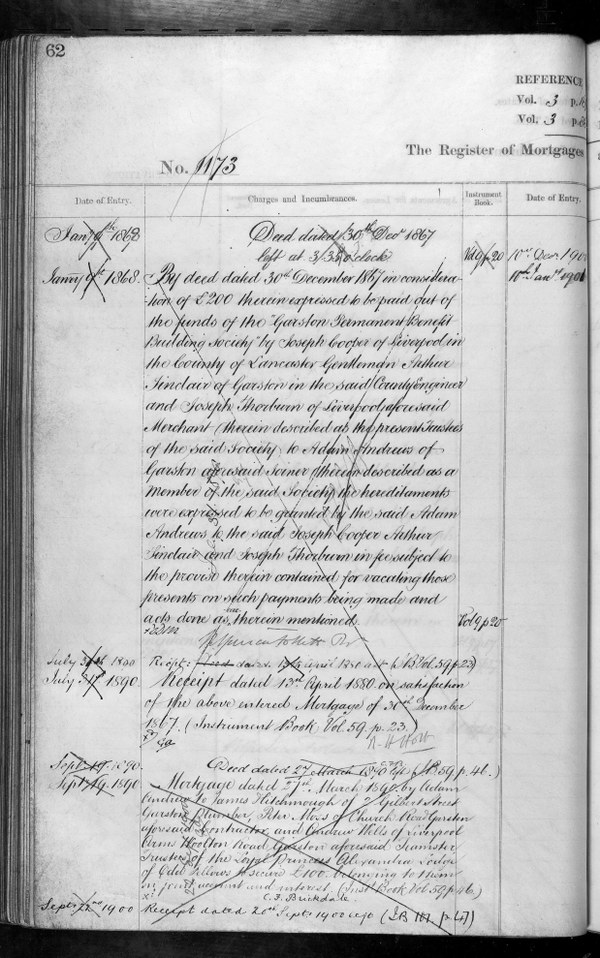 62
REFERENCE
Vol. 3 p.
Vol. 3 p.
The Register of Mortgages
No. 1173
Date of Entry.
Charges and Incumbrances.
Instrument Book.
Date of Entry.
Jany 9th 1868
Deed dated 30th Decr 1867
left at 3/35 o'clock
Vol 9 p 20
10th Decr 190
Jany 9th 1868.
By deed dated 30th December 1867 in considera-
10th Jany 1901
tion of £200 therein expressed to be paid out of
the funds of the "Garston Permanent Benefit
Building Society" by Joseph Cooper of Liverpool in
the County of Lancaster Gentleman Arthur
Sinclair of Garston in the said County Engineer
and Joseph Thorburn of Liverpool aforesaid
Merchant (therein described as the present Trustees
of the said Society) to Adam Andrews of
Garston aforesaid Joiner (therein described as a
Member of the said Society) the hereditaments
were expressed to be granted by the said Adam
Andrews to the said Joseph Cooper Arthur
Sinclair and Joseph Thorburn in fee subject to
the proviso therein contained for vacating those
presents on such payments being made and
acts done as therein mentioned.
Vol 9 p 20
July 31st 1890
Rcpt: dated 13th April 1880 (I.B. Vol. 59, p. 23)
July 31st 1890.
Receipt dated 13th April 1880 on satisfaction
of the above entered Mortgage of 30th December
1867. (Instrument Book Vol. 59. p. 23.)
Sept. 19. 1890.
Deed dated 27 March 1890 left (I.B. 59. p. 46.)
Sept. 19. 1890
Mortgage dated 27th March 1890 by Adam
Andrew to James Hitchmough of 7 Gilbert Street
Garston Plumber, Peter Moss of Church Road Garston
aforesaid Contractor, and Andrew Wells of Liverpool
Arms Woolton Road Garston aforesaid Teamster
Trustees of the Loyal Princess Alexandra Lodge
of Odd Fellows to secure £100 belonging to them
on joint account and interest. (Inst. Book Vol. 59 p 46.)
C. F. Brickdale
Sept. 22nd 1900
Receipt dated 20th Sept. 1900 (I.B. 101 p 47)